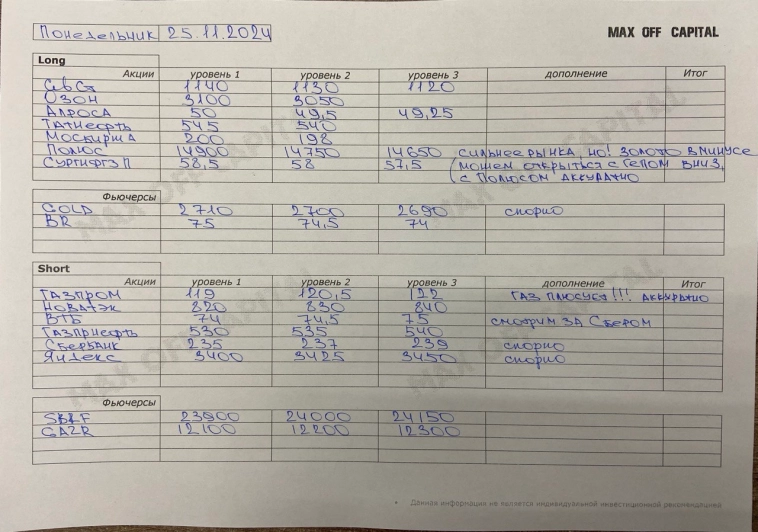 Понедельник 25.11.2024 MAX OFF CAPITAL
Long
Акции уровень 1 уровень 2 уровень 3 дополнение Итог
1140 1130 1120
Озон 3100 3050
Алроса 50 49,5 49,25
Татнефть 545 540
Москбиржа 200 198
Полюс 14900 14750 14650 сильнее рынка, но! золото в минусе
Сургнфгз П 58,5 58 57,5 (можем открыться с гепом вниз,
с Полюсом аккуратно
Фьючерсы
GOLD 2710 2700 2690 спорно
BR 75 74,5 74
Short
Акции уровень 1 уровень 2 уровень 3 дополнение Итог
Газпром 119 120,5 122 газ плюсует!!! аккуратно
Новатэк 820 830 840
ВТБ 74 74,5 75 смотрим за Сбером
Газпрнефть 530 535 540
Сбербанк 235 237 239 спорно
Яндекс 3400 3425 3450 спорно
Фьючерсы
SBRF 23900 24000 24150
GAZR 12100 12200 12300
MAX OFF CAPITAL
• Данная информация не является индивидуальной инвестиционной рекомендацией